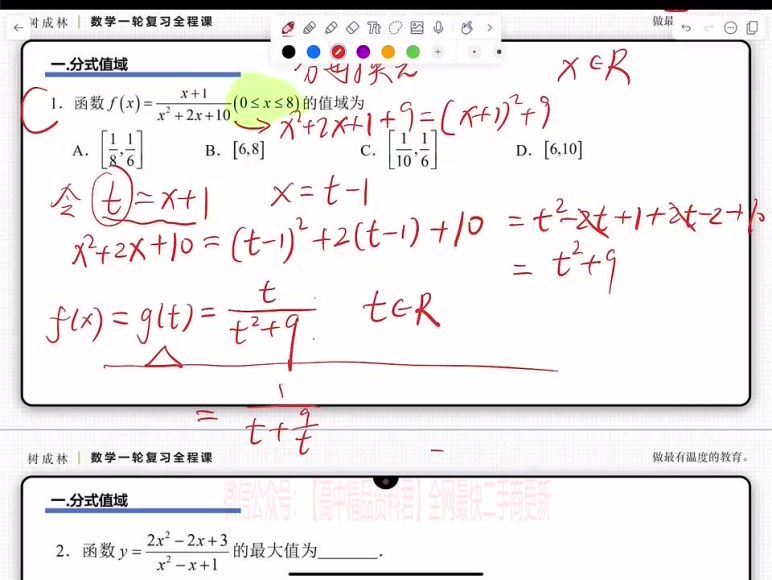 树成林 | 数学一轮复习全程课
做最
一.分式值域
x∈R
1. 函数 f(x)=\frac{x+1}{x²+2x+10}(0≤x≤8)的值域为
→x²+2x+1+9=(x+1)²+9
A. [\frac{1}{8},\frac{1}{6}] B. [6,8] C. [\frac{1}{10},\frac{1}{6}] D. [6,10]
令 t=x+1 x=t-1
x²+2x+10=(t-1)²+2(t-1)+10 =t²-2t+1+2t-2+10
=t²+9
f(x)=g(t)=\frac{t}{t²+9} t∈R
=\frac{1}{t+\frac{9}{t}}
树成林 | 数学一轮复习全程课
做最有温度的教育。
一.分式值域
微信公众号:【高中精品资料君】全网最快二手商更新
2. 函数 y=\frac{2x²-2x+3}{x²-x+1}的最大值为______.